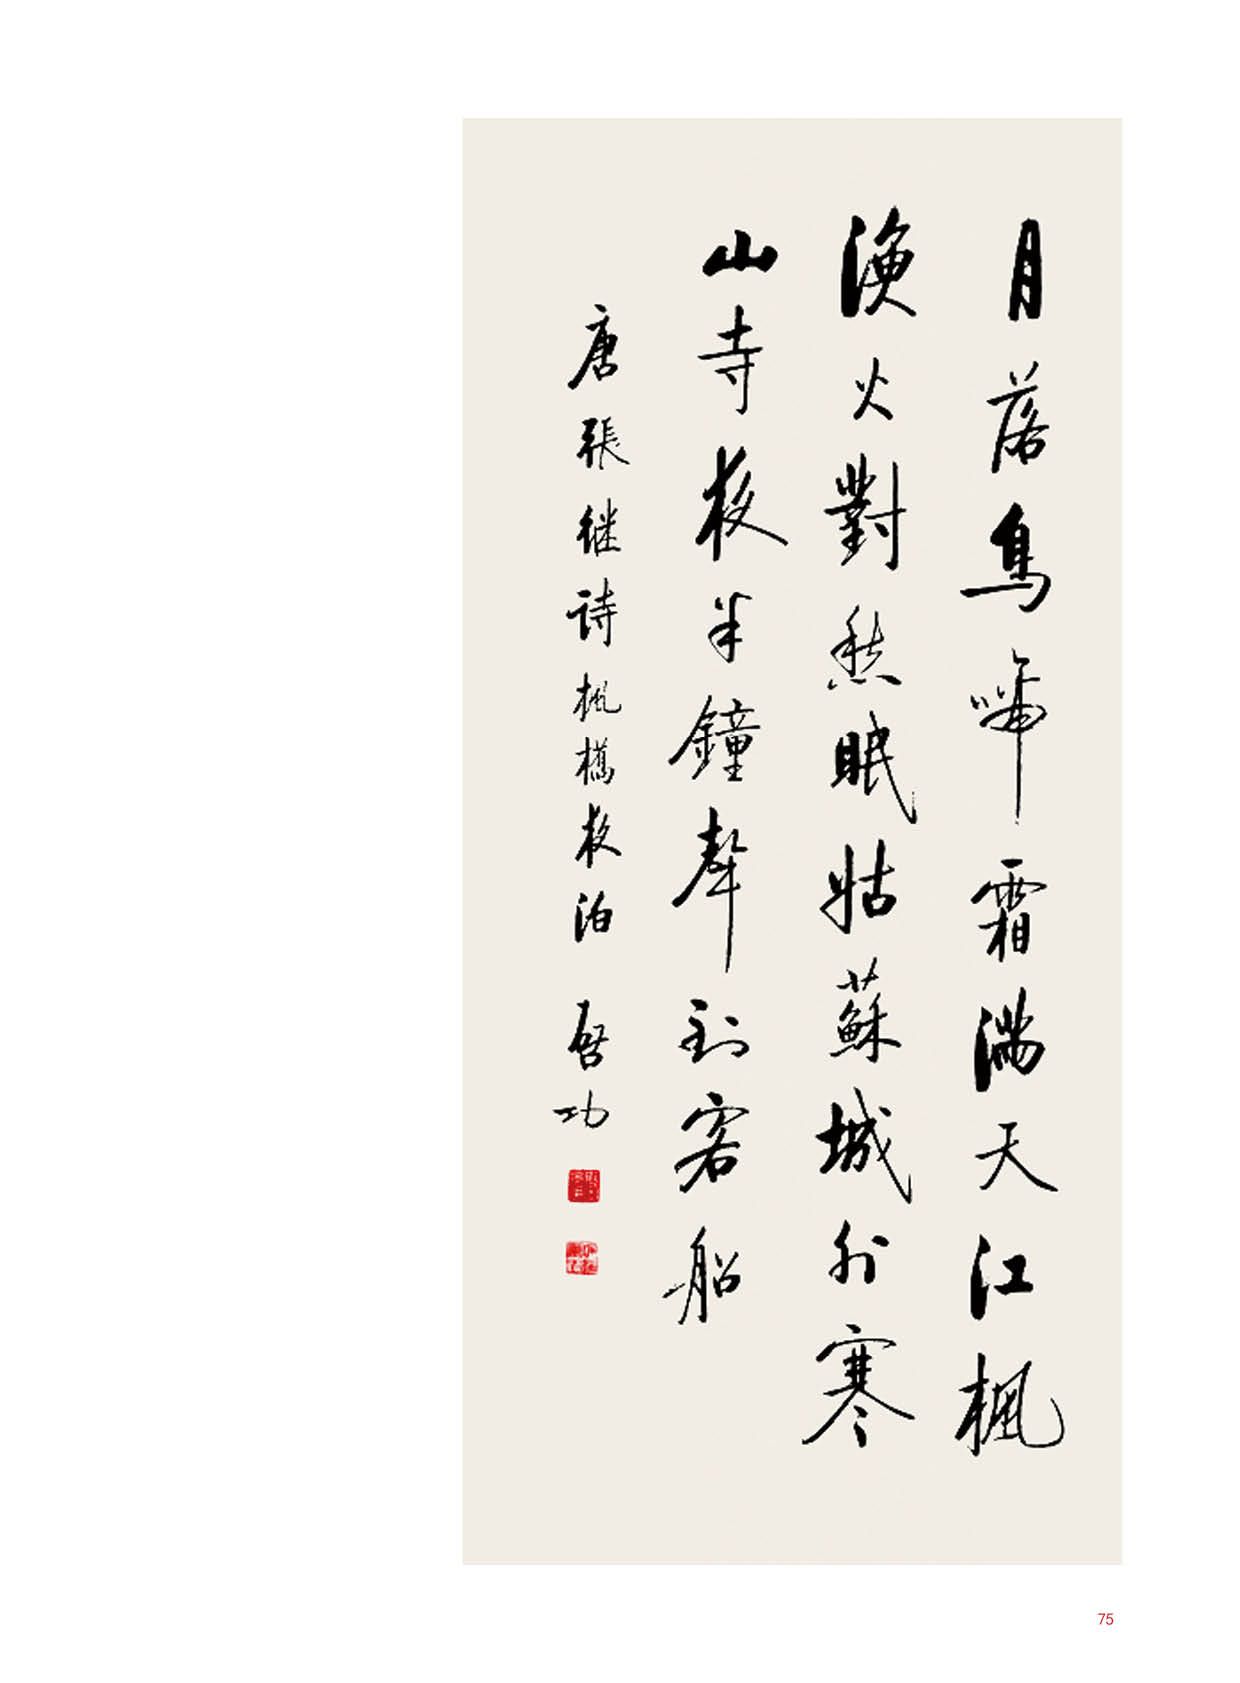 月落烏啼霜滿天江楓
漁火對愁眠姑蘇城外寒
山寺夜半鐘聲到客船
唐張继诗楓橋夜泊 启功
75